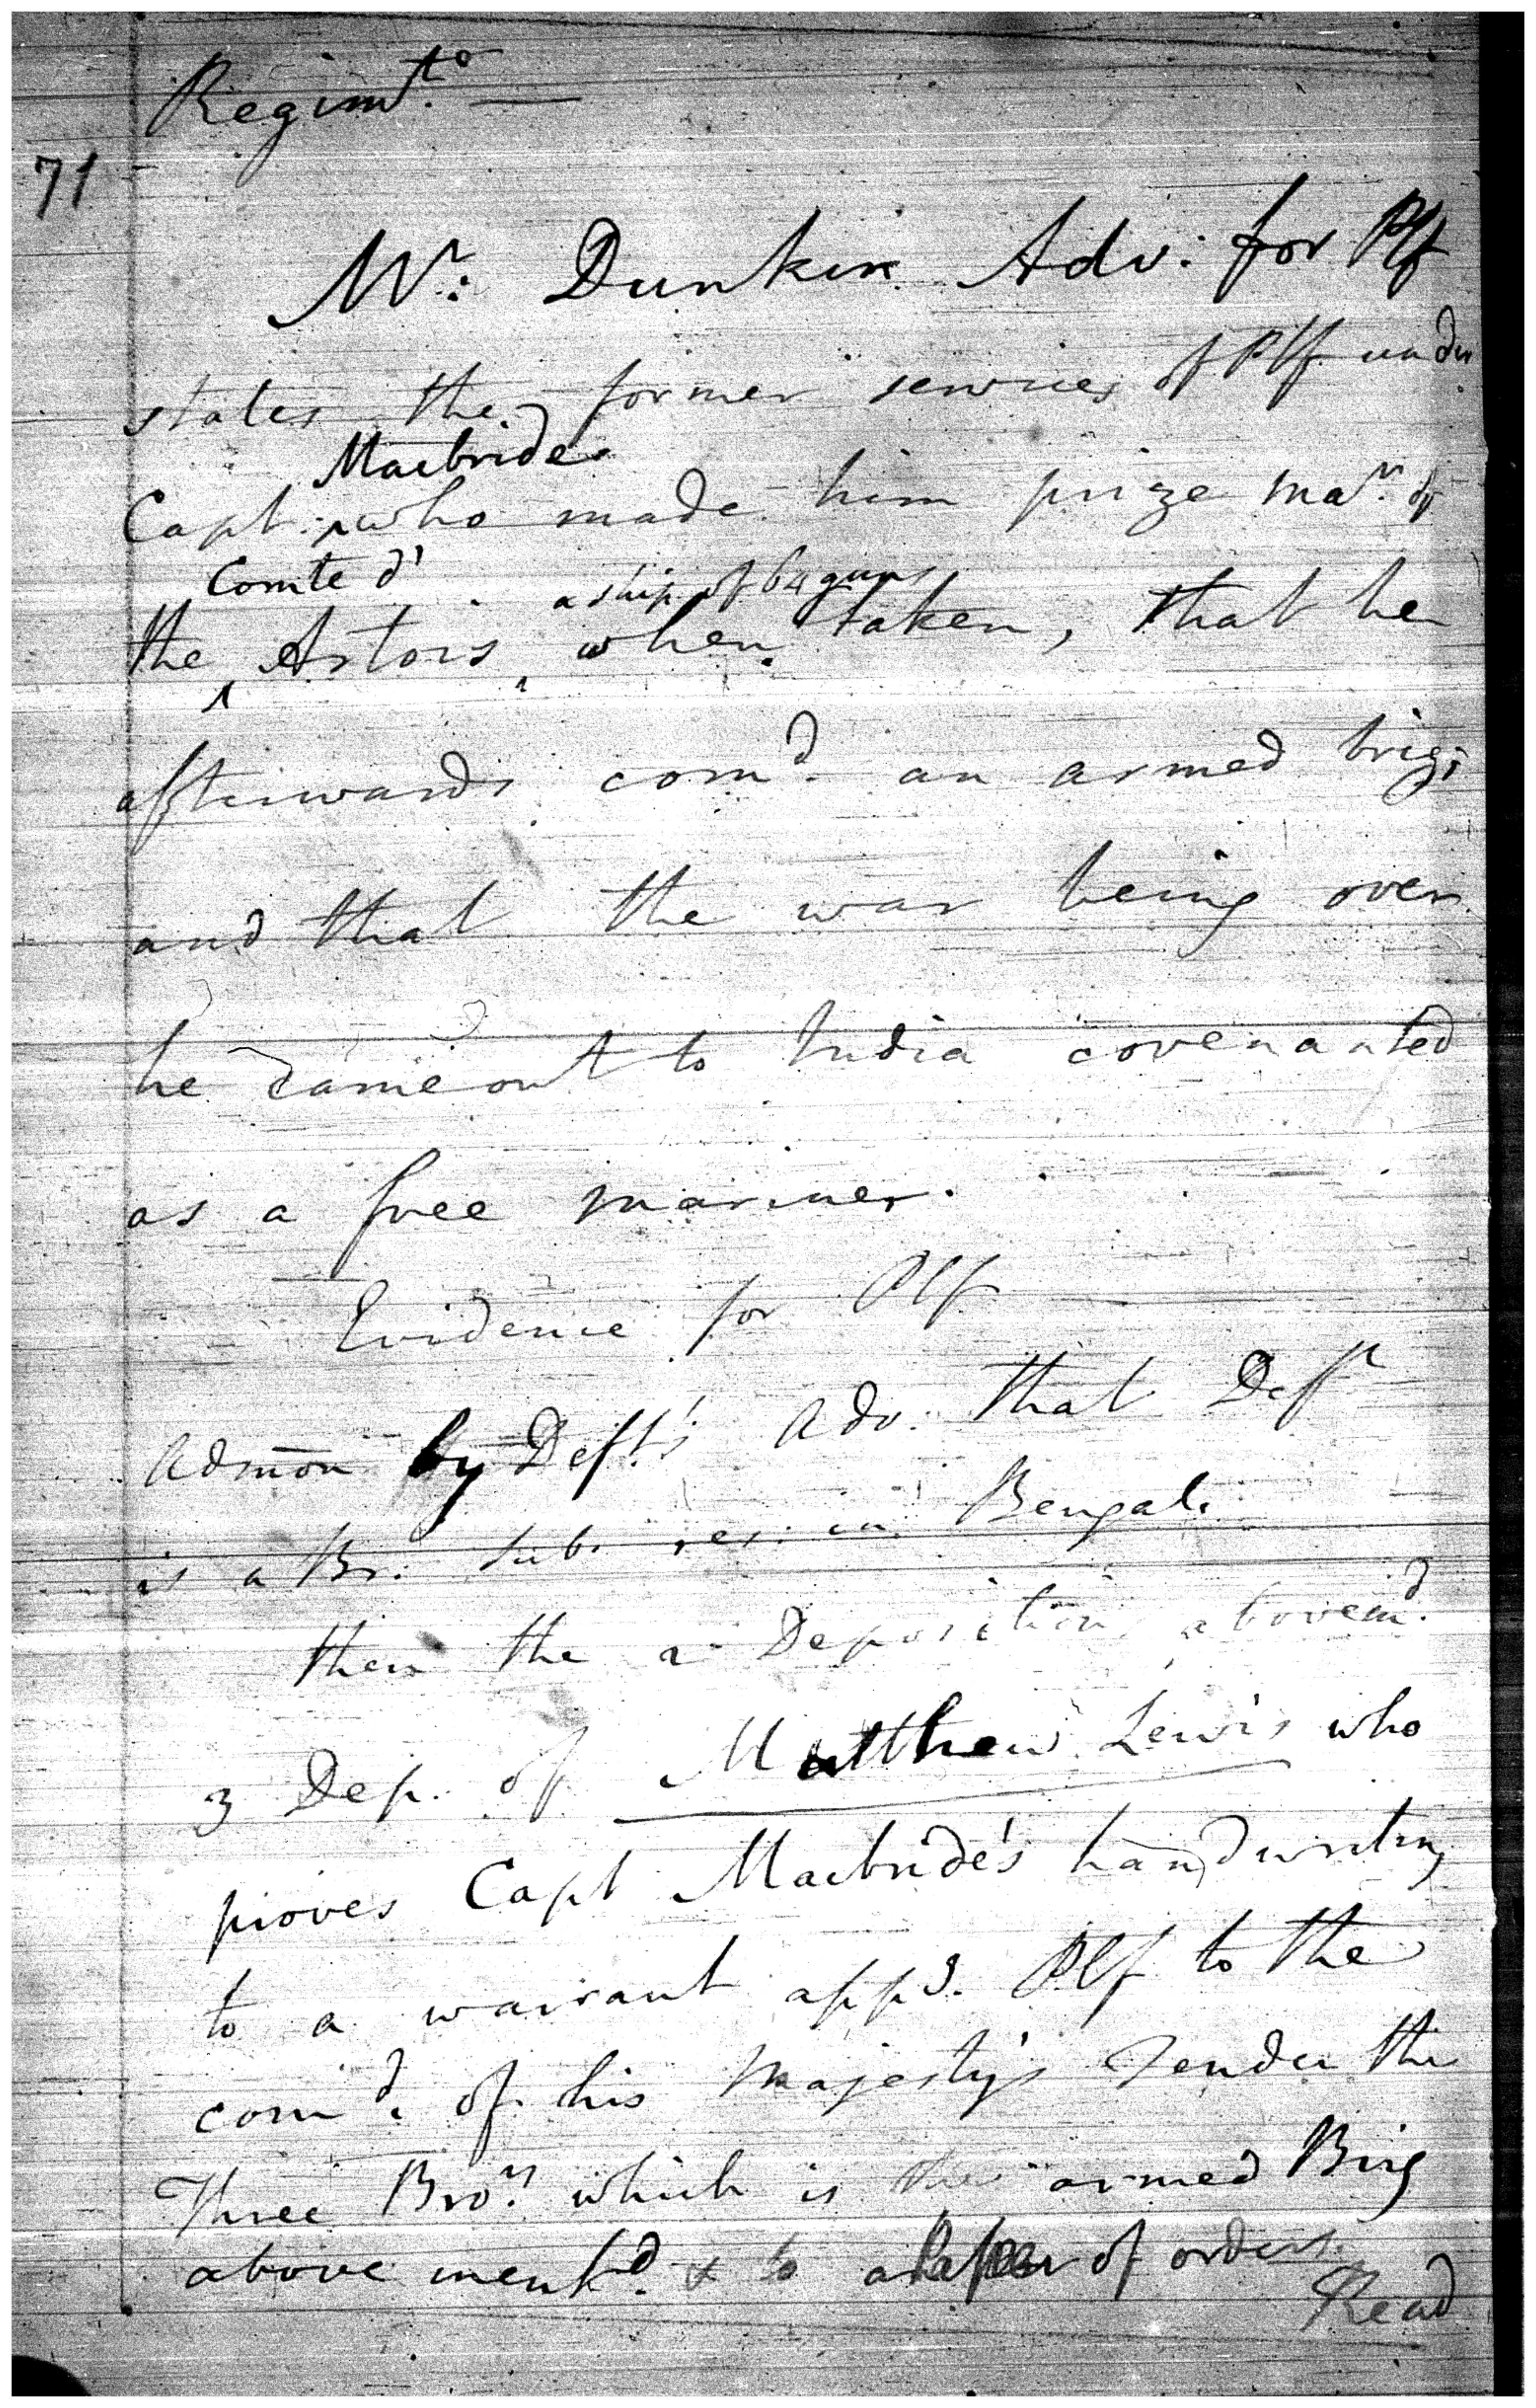 Regimt.o —
71
Mr. Dunkin Adv. for Plf
states the former services of Plf under
Macbride
Capt. ^ who made him prize mar. of
Comte d' a ship of 64 guns
the ^ Artois ^ when taken, that he
afterwards comd. an armed brig;
and that the war being over
he came out to India covenanted
as a free mariner.
Evidence for Plf
Admōn by Deft's Adv. that Deft
is a Br. sub. res. in Bengal.
then the 2 Depositions abovemd.
3 Dep. of Matthew Lewis who
proves Capt Macbride's handwriting
to a warrant appg. Plf to the
comd. of his Majesty's Tender the
Three Bros. which is the armed Brig
above mentd. & to a paper of orders.
Read